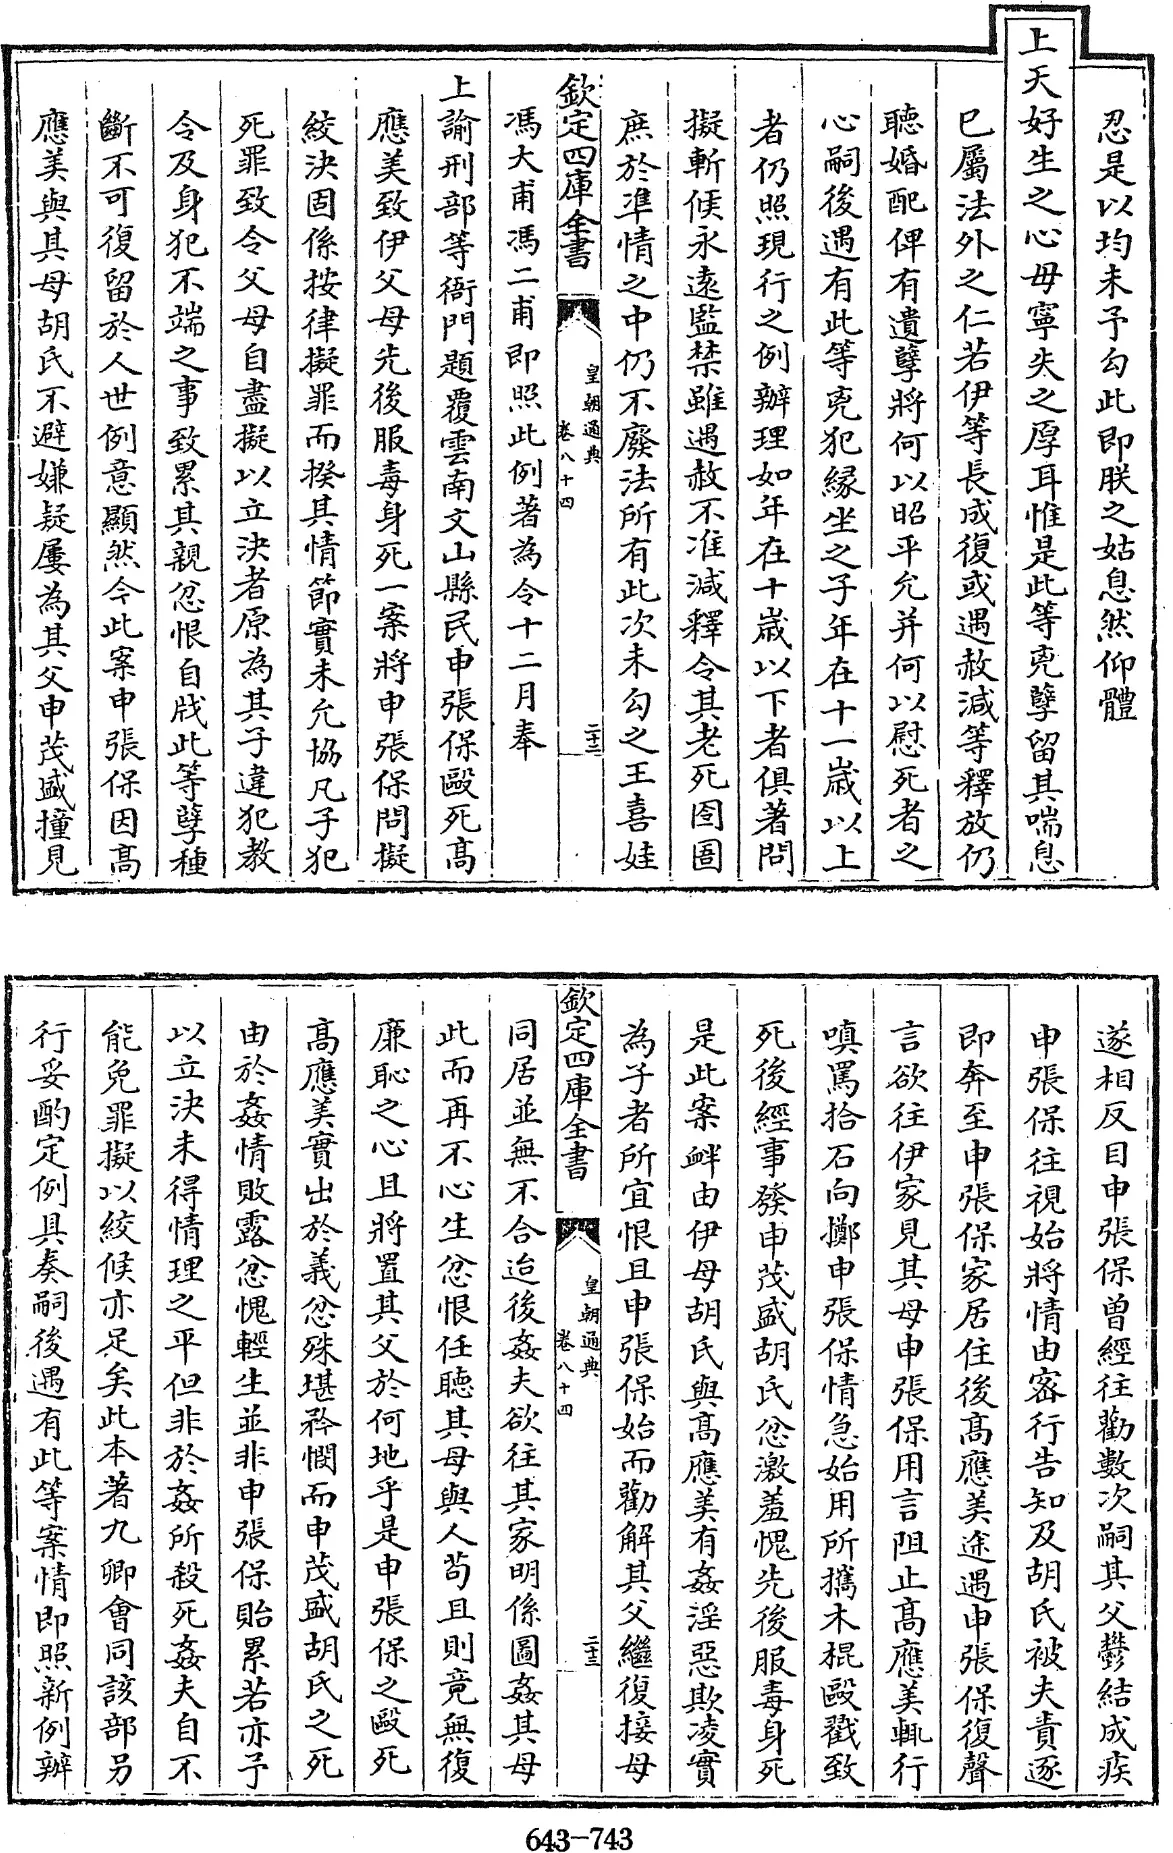 忍是以均未予勾此即朕之姑息然仰體
上天好生之心毋寧失之厚耳惟是此等兇孽留其喘息
已屬法外之仁若伊等長成復或遇赦減等釋放仍
聽婚配俾有遺孽將何以昭平允并何以慰死者之
心嗣後遇有此等兇犯緣坐之子年在十一歲以上
者仍照現行之例辦理如年在十歲以下者俱著問
擬斬候永遠監禁雖遇赦不准減釋令其老死囹圄
庶於準情之中仍不廢法所有此次未勾之王喜娃
欽定四庫全書
皇朝通典
卷八十四
二十三
馮大甫馮二甫即照此例著為令十二月奉
上諭刑部等衙門題覆雲南文山縣民申張保毆死高
應美致伊父母先後服毒身死一案將申張保問擬
絞決固係按律擬罪而揆其情節實未允協凡子犯
死罪致令父母自盡擬以立決者原為其子違犯教
令及身犯不端之事致累其親忿恨自戕此等孽種
斷不可復留於人世例意顯然今此案申張保因高
應美與其母胡氏不避嫌疑屢為其父申茂盛撞見
遂相反目申張保曾經往勸數次嗣其父鬱結成疾
申張保往視始將情由密行告知及胡氏被夫責逐
即奔至申張保家居住後高應美途遇申張保復聲
言欲往伊家見其母申張保用言阻止高應美輒行
嗔罵拾石向擲申張保情急始用所攜木棍毆戳致
死後經事發申茂盛胡氏忿激羞愧先後服毒身死
是此案衅由伊母胡氏與高應美有姦淫惡欺凌實
為子者所宜恨且申張保始而勸解其父繼復接母
欽定四庫全書
皇朝通典
卷八十四
二十三
同居並無不合迨後姦夫欲往其家明係圖姦其母
此而再不心生忿恨任聽其母與人苟且則竟無復
廉恥之心且將置其父於何地乎是申張保之毆死
高應美實出於義忿殊堪矜憫而申茂盛胡氏之死
由於姦情敗露忿愧輕生並非申張保貽累若亦予
以立決未得情理之平但非於姦所殺死姦夫自不
能免罪擬以絞候亦足矣此本著九卿會同該部另
行妥酌定例具奏嗣後遇有此等案情即照新例辦
643-743